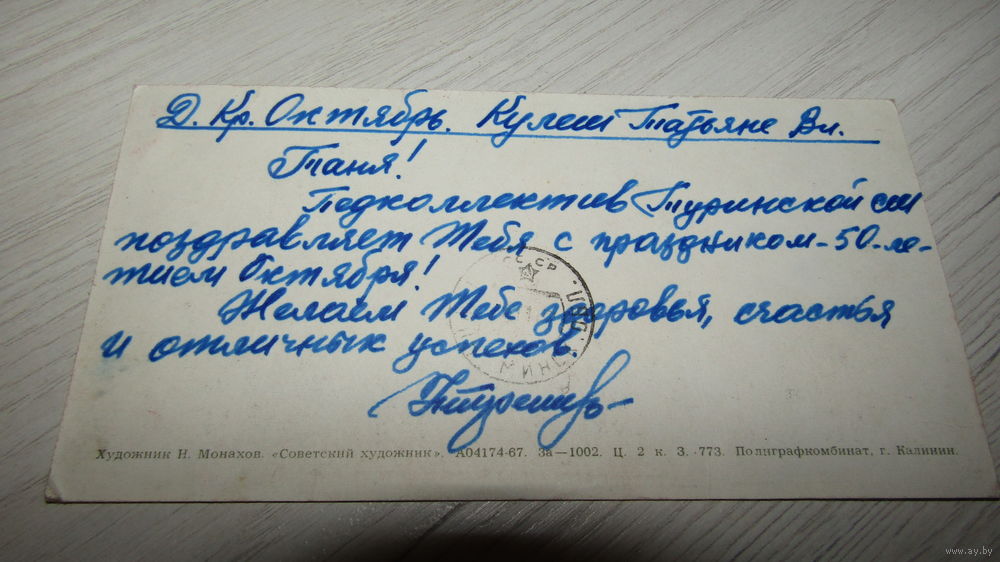 Д. Кр. Октябрь. Кулеш Татьяне Вл.
Таня!
Педколлектив Туринской сш
поздравляет Тебя с праздником - 50-ле-
тием Октября!
Желаем Тебе здоровья, счастья
и отличных успехов.
СССР
МИНСК
Художник Н. Монахов. «Советский художник». А04174-67. За—1002. Ц. 2 к. З. 773. Полиграфкомбинат, г. Калинин.
www.ay.by